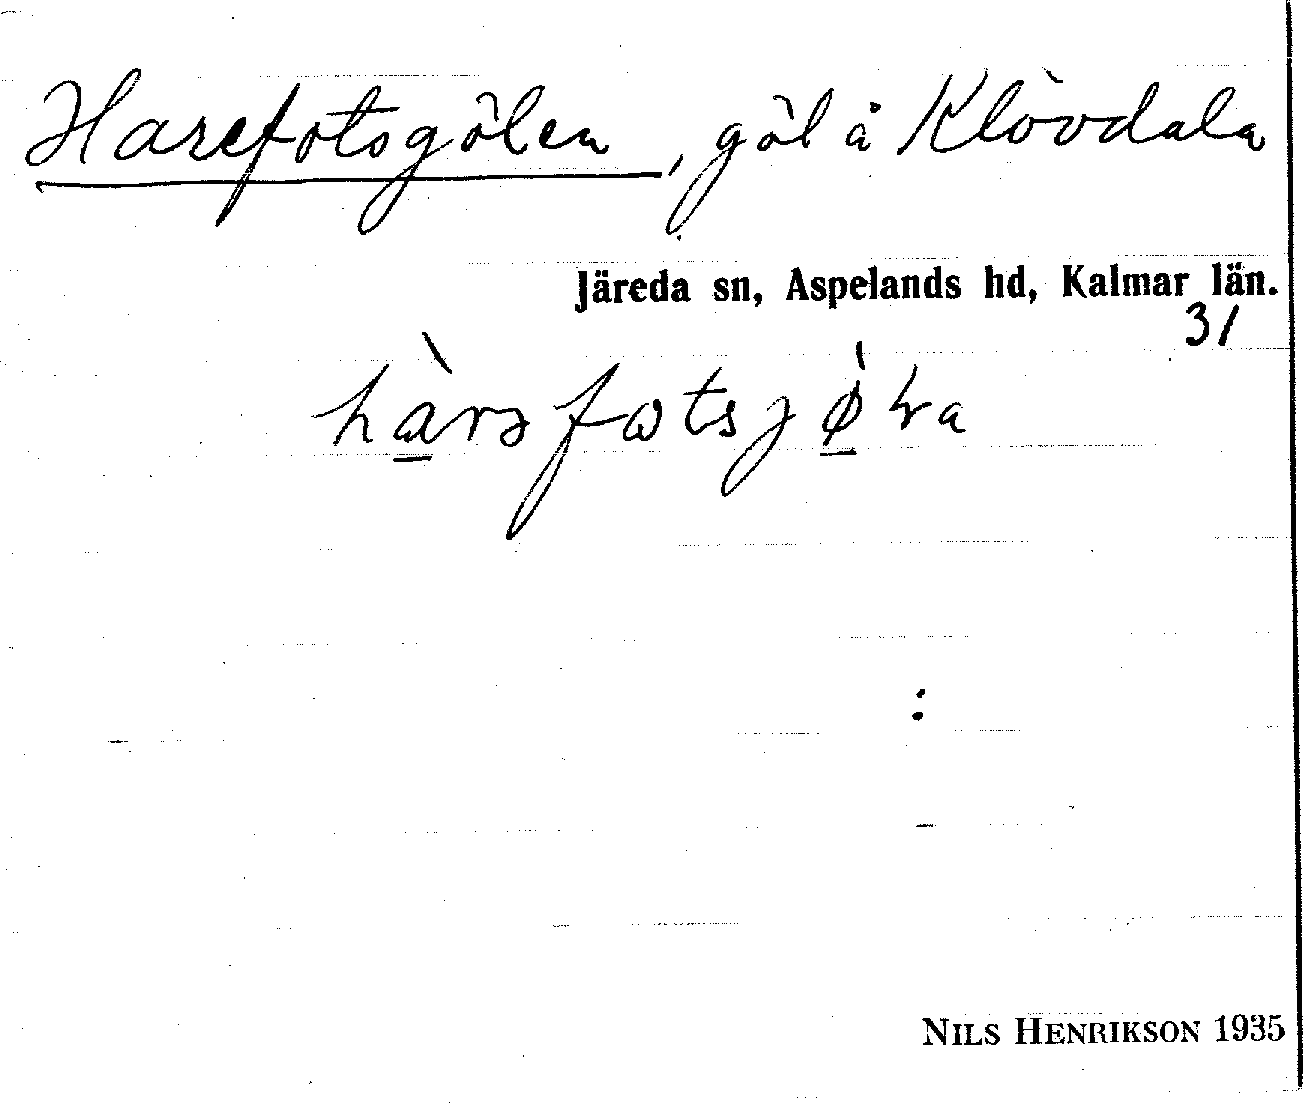 Harefotsgölen, göl å Klövdala
Järeda sn, Aspelands hd, Kalmar län.
31
NILS HENRIKSON 1935